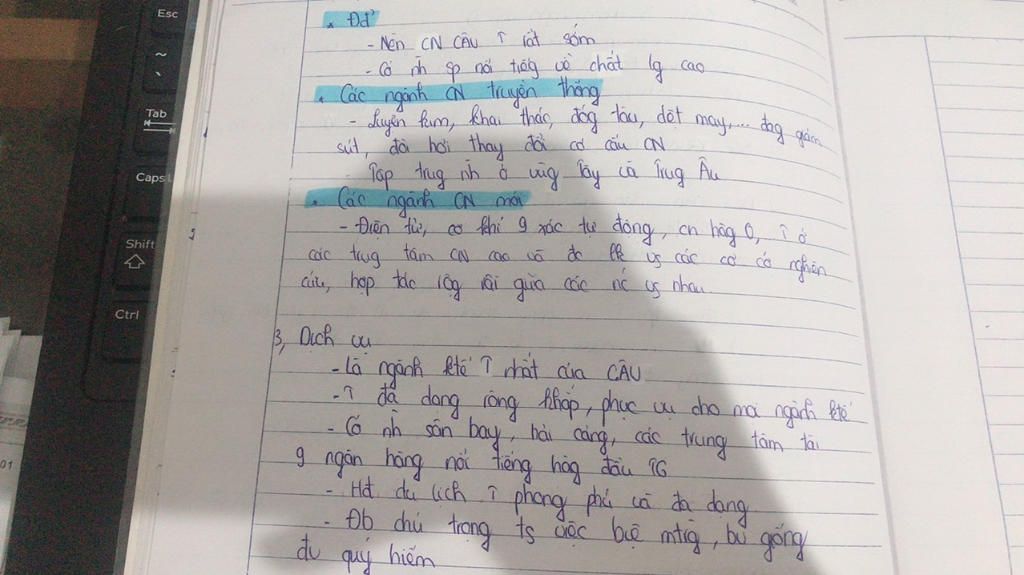 Esc
~
`
Tab
Caps L
Shift
Ctrl
01
* Đđ²
- Nền CN CÂU ↑ rất sớm
- Có nh sp nổi tiếg về chất lg cao
* Các ngành CN truyền thống
- Luyện kim, khai thác, đóg tàu, dệt may,... đag giảm
sút, đòi hỏi thay đổi cơ cấu CN
- Tập trug nh ở vùg Tây và Trug Âu
* Các ngành CN mới
- Điện tử, cơ khí 9 xác tự động, cn hàg 0, ↑ ở
các trug tâm CN cao và đc lk vs các cơ sở nghiên
cứu, hợp tác rộg rãi giữa các nc vs nhau
3, Dịch vụ
- Là ngành ktế ↑ nhất của CÂU
- ↑ đa dạng rộng khắp, phục vụ cho mọi ngành ktế
- Có nh sân bay, hải cảng, các trung tâm tài
9 ngân hàng nổi tiếng hàg đầu TG
- Hđ du lịch ↑ phong phú và đa dạng
- Đb chú trọng ts việc bvệ mtrig, bv giống
đv quý hiếm